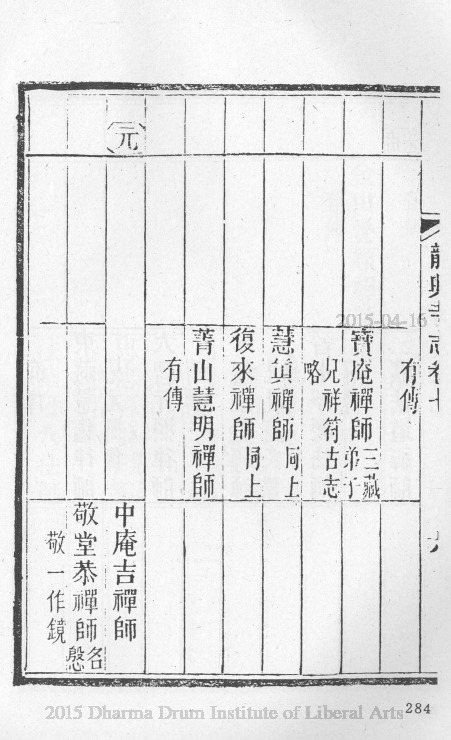 龍興寺志卷十
九
有傳
寶庵禪師 三藏弟子
見祥符古志
略
慧眞禪師 同上
復來禪師 同上
菁山慧明禪師
有傳
元
中庵吉禪師
敬堂恭禪師 名慇
敬一作鏡
2015-04-16
2015 Dharma Drum Institute of Liberal Arts
284